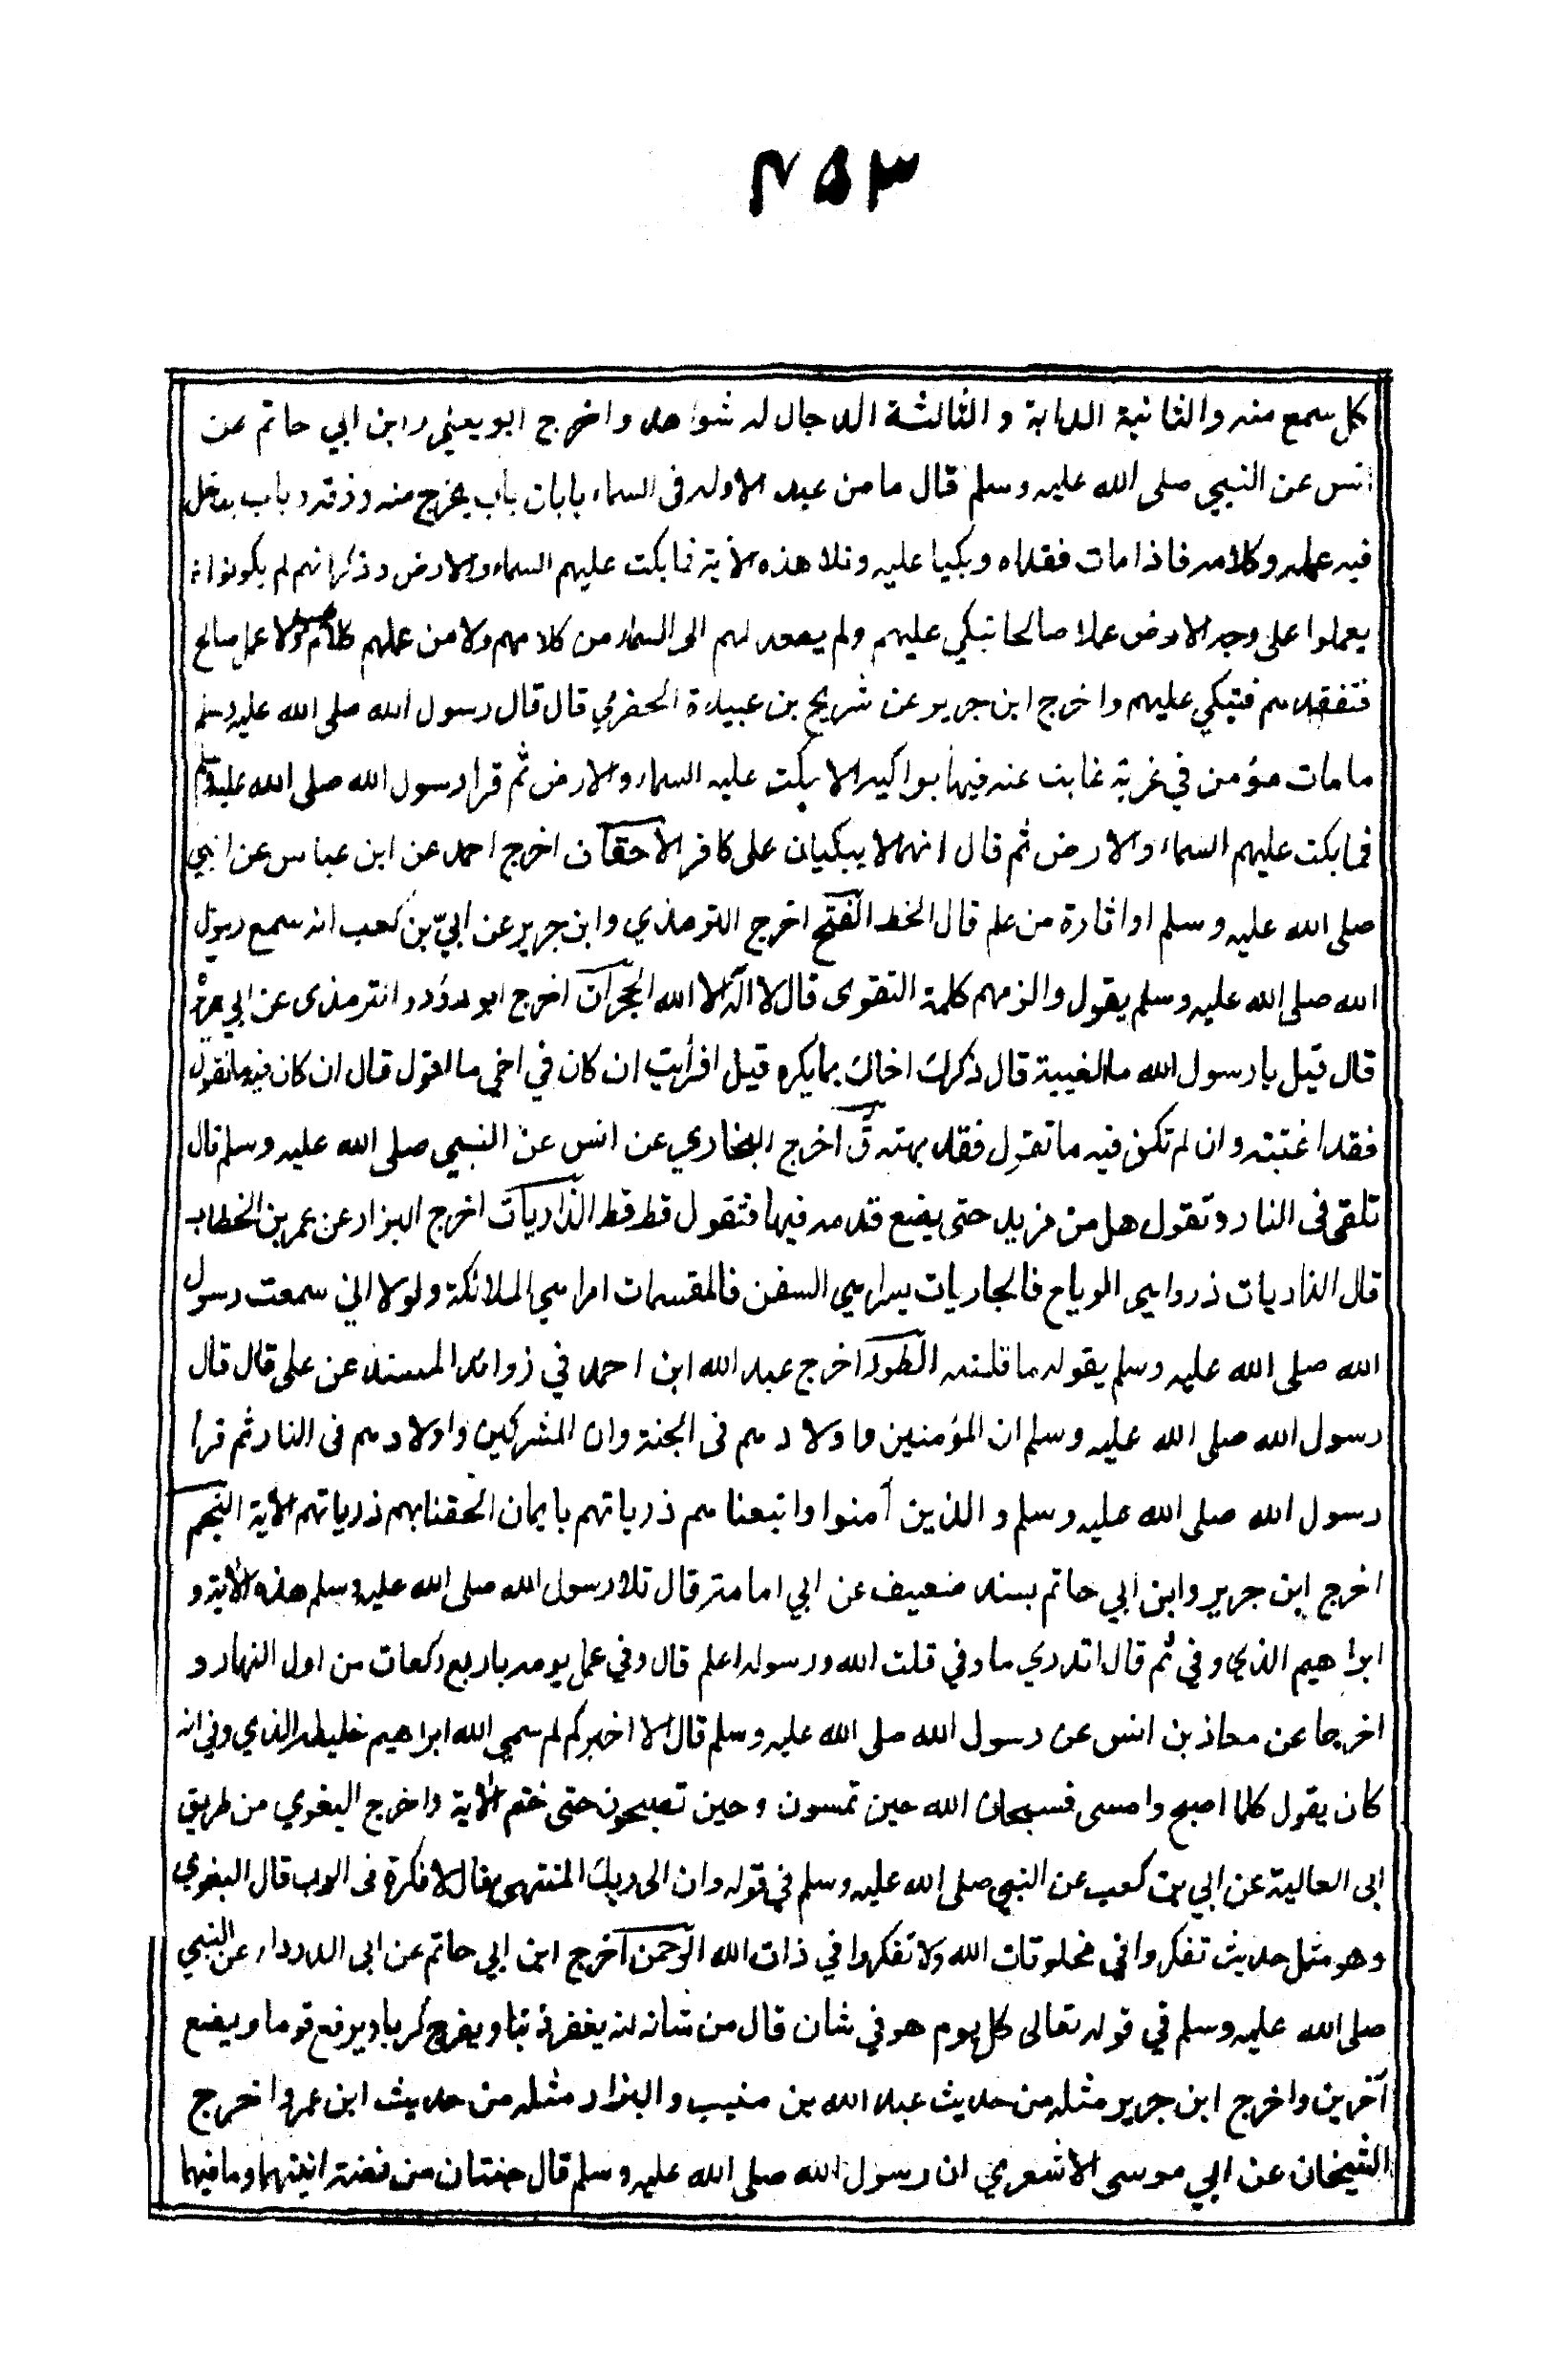 ٣٥٧
كل سمع منه والثانية الدابة و الثالثة الدجال له شواهد واخرج ابو يعلي وابن ابي حاتم عن
انس عن النبي صلى الله عليه وسلم قال ما من عبد الا وله فى السماء بابان باب يخرج منه رزقه وباب يدخل
فيه عمله وكلامه فاذا مات فقداه وبكيا عليه وتلا هذه الآية فما بكت عليهم السماء والارض وذكر انهم لم يكونوا
يعملوا على وجه الارض عملا صالحا تبكي عليهم ولم يصعد لهم الى السماء من كلامهم ولا من عملهم كلام ولا عمل صالح
فتفقدهم فتبكي عليهم واخرج ابن جرير عن شريح بن عبيدة الحضرمي قال قال رسول الله صلى الله عليه وسلم
ما مات مؤمن في غربة غابت عنه فيها بواكيه الا بكت عليه السماء والارض ثم قرا رسول الله صلى الله عليه وسلم
فما بكت عليهم السماء والارض ثم قال انهما لا يبكيان على كافر الاحقاف اخرج احمد عن ابن عباس عن النبي
صلى الله عليه وسلم او اثارة من علم قال الخط الفتح اخرج الترمذي وابن جرير عن ابيّ بن كعب انه سمع رسول
الله صلى الله عليه وسلم يقول والزمهم كلمة التقوى قال لا اله الا الله الحجرات اخرج ابو داؤد والترمذى عن ابي هريرة
قال قيل يا رسول الله ما الغيبة قال ذكرك اخاك بما يكره قيل افرأيت ان كان في اخي ما اقول قال ان كان فيه ما تقول
فقد اغتبته وان لم تكن فيه ما تقول فقد بهته ق اخرج البخاري عن انس عن النبي صلى الله عليه وسلم قال
تلقى فى النار وتقول هل من مزيد حتى يضع قدمه فيها فتقول قط قط الذاريات اخرج البزار عن عمر بن الخطاب
قال الذاريات ذروا هي الرياح فالجاريات يسرا هي السفن فالمقسمات امرا هي الملائكة ولولا اني سمعت رسول
الله صلى الله عليه وسلم يقوله ما قلته الطور اخرج عبد الله ابن احمد في زوائد المسند عن على قال قال
رسول الله صلى الله عليه وسلم ان المؤمنين واولادهم فى الجنة وان المشركين واولادهم فى النار ثم قرأ
رسول الله صلى الله عليه وسلم والذين آمنوا واتبعناهم ذرياتهم بايمان الحقنا بهم ذرياتهم الآية النجم
اخرج ابن جرير وابن ابي حاتم بسند ضعيف عن ابي امامة قال تلا رسول الله صلى الله عليه وسلم هذه الآية و
ابراهيم الذي وفي ثم قال اتدري ما وفي قلت الله ورسوله اعلم قال وفي عمل يومه باربع ركعات من اول النهار و
اخرجا عن معاذ بن انس عن رسول الله صلى الله عليه وسلم قال الا اخبركم لم سمي الله ابراهيم خليله الذي وفي انه
كان يقول كلما اصبح وامسى فسبحان الله حين تمسون وحين تصبحون حتى ختم الآية واخرج البغوي من طريق
ابى العالية عن ابي بن كعب عن النبي صلى الله عليه وسلم في قوله وان الى ربك المنتهى قال لا فكرة فى الرب قال البغوي
وهو مثل حديث تفكروا في مخلوقات الله ولا تفكروا في ذات الله الرحمن اخرج ابن ابي حاتم عن ابى الدرداء عن النبي
صلى الله عليه وسلم في قوله تعالى كل يوم هو في شان قال من شانه ان يغفر ذنبا ويفرج كربا ويرفع قوما ويضع
آخرين واخرج ابن جرير مثله من حديث عبد الله بن منيب والبزار مثله من حديث ابن عمر واخرج
الشيخان عن ابي موسى الاشعري ان رسول الله صلى الله عليه وسلم قال جنتان من فضة انيتهما وما فيهما